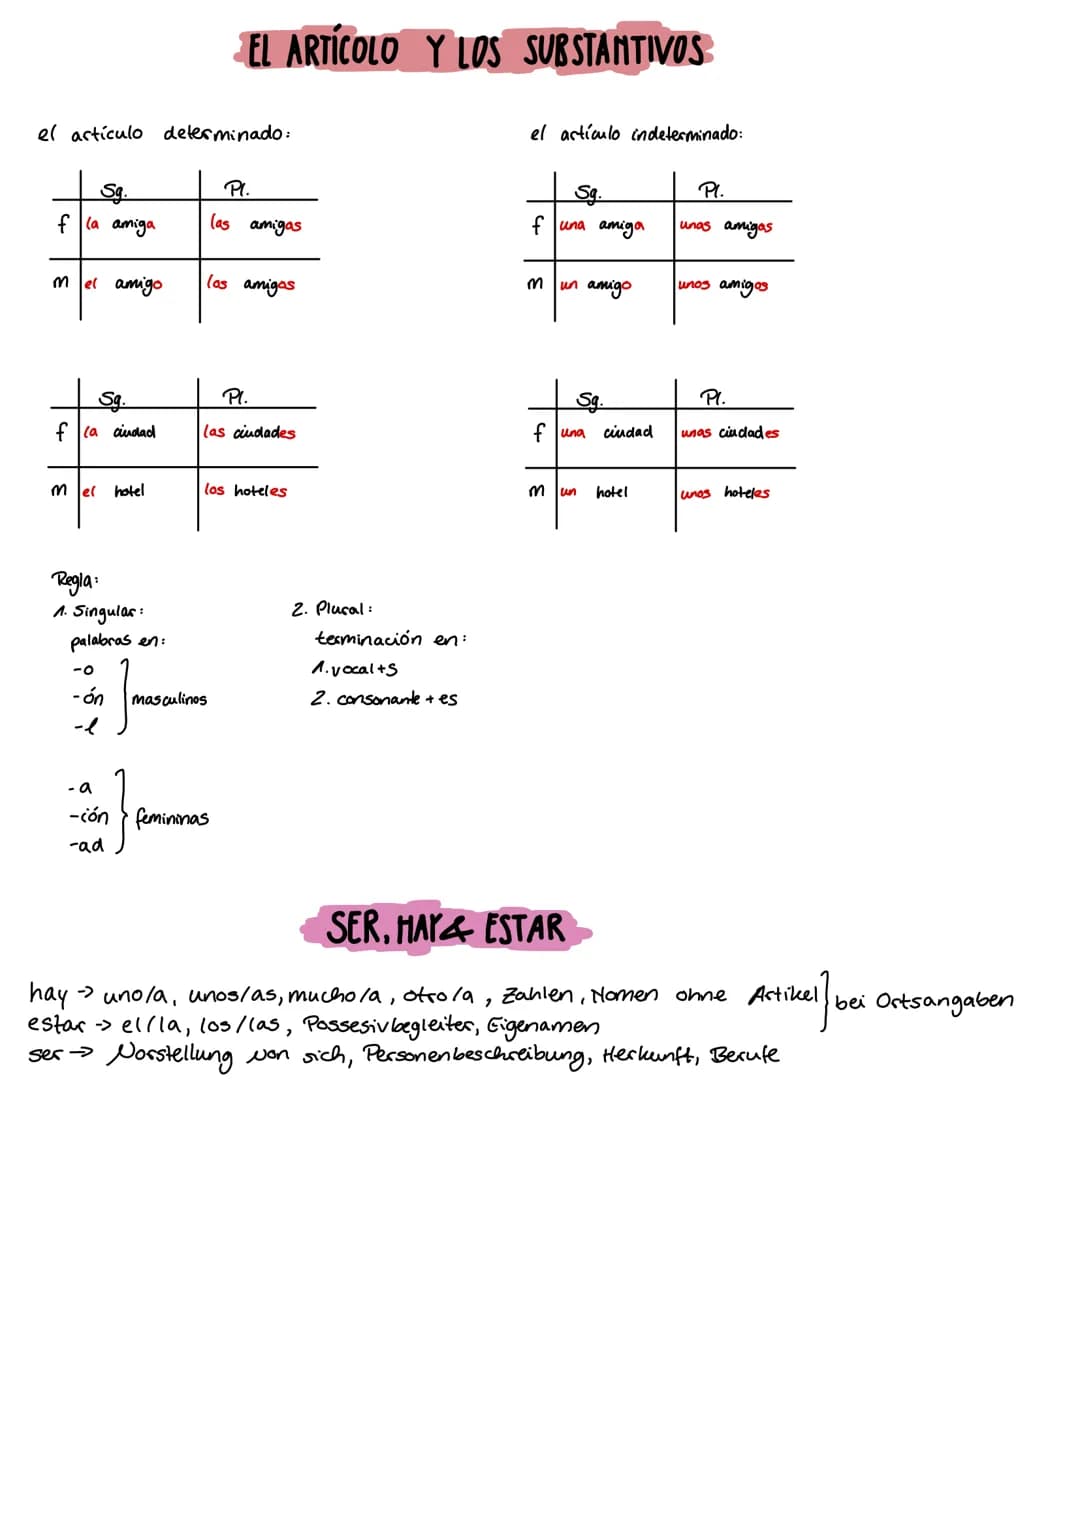 EL ARTÍCOLO Y LOS SUBSTANTIVOS
el artículo determinado:
Sg. Pl.
f la amiga las amigas
m el amigo los amigos
el artículo indeterminado:
Sg. Pl.
f una amiga unas amigas
m un amigo unos amigos
Sg. Pl.
f la ciudad las ciudades
m el hotel los hoteles
Sg. Pl.
f una ciudad unas ciudades
m un hotel unos hoteles
Regla:
1. Singular:
palabras en:
-o
-ón masculinos
-l
-a
-ión femininas
-ad
2. Plural:
terminación en:
1. vocal+s
2. consonante + es
SER, HAY & ESTAR
hay → uno/a, unos/as, mucho/a, otro/a, Zahlen, Nomen ohne Artikel
estar → el/la, los/las, Possesivbegleiter, Eigenamen
bei Ortsangaben
ser → Vorstellung von sich, Personenbeschreibung, Herkunft, Berufe